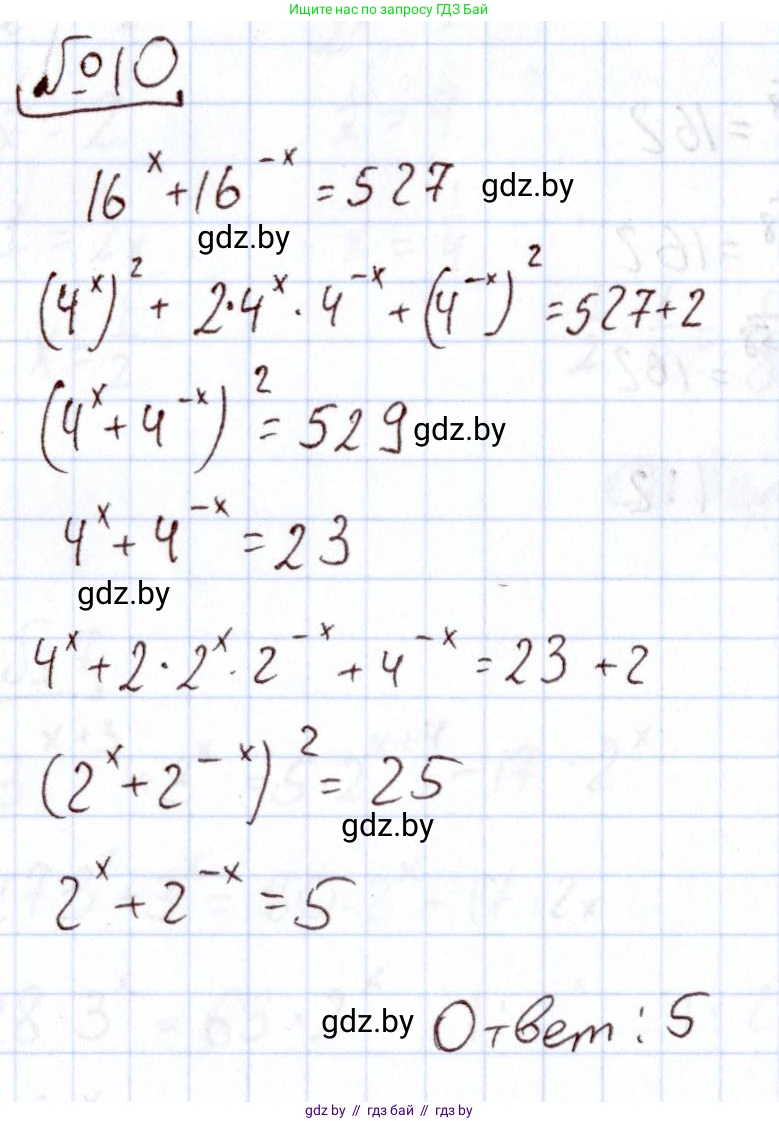 Ищите нас по запросу ГДЗ Бай
№10
16^x + 16^{-x} = 527 gdz.by
gdz.by
(4^x)^2 + 2·4^x · 4^{-x} + (4^{-x})^2 = 527+2
(4^x + 4^{-x})^2 = 529 gdz.by
4^x + 4^{-x} = 23
gdz.by
4^x + 2·2^x · 2^{-x} + 4^{-x} = 23 + 2
(2^x + 2^{-x})^2 = 25
gdz.by
2^x + 2^{-x} = 5
gdz.by Ответ: 5
gdz by // гдз бай // гдз by